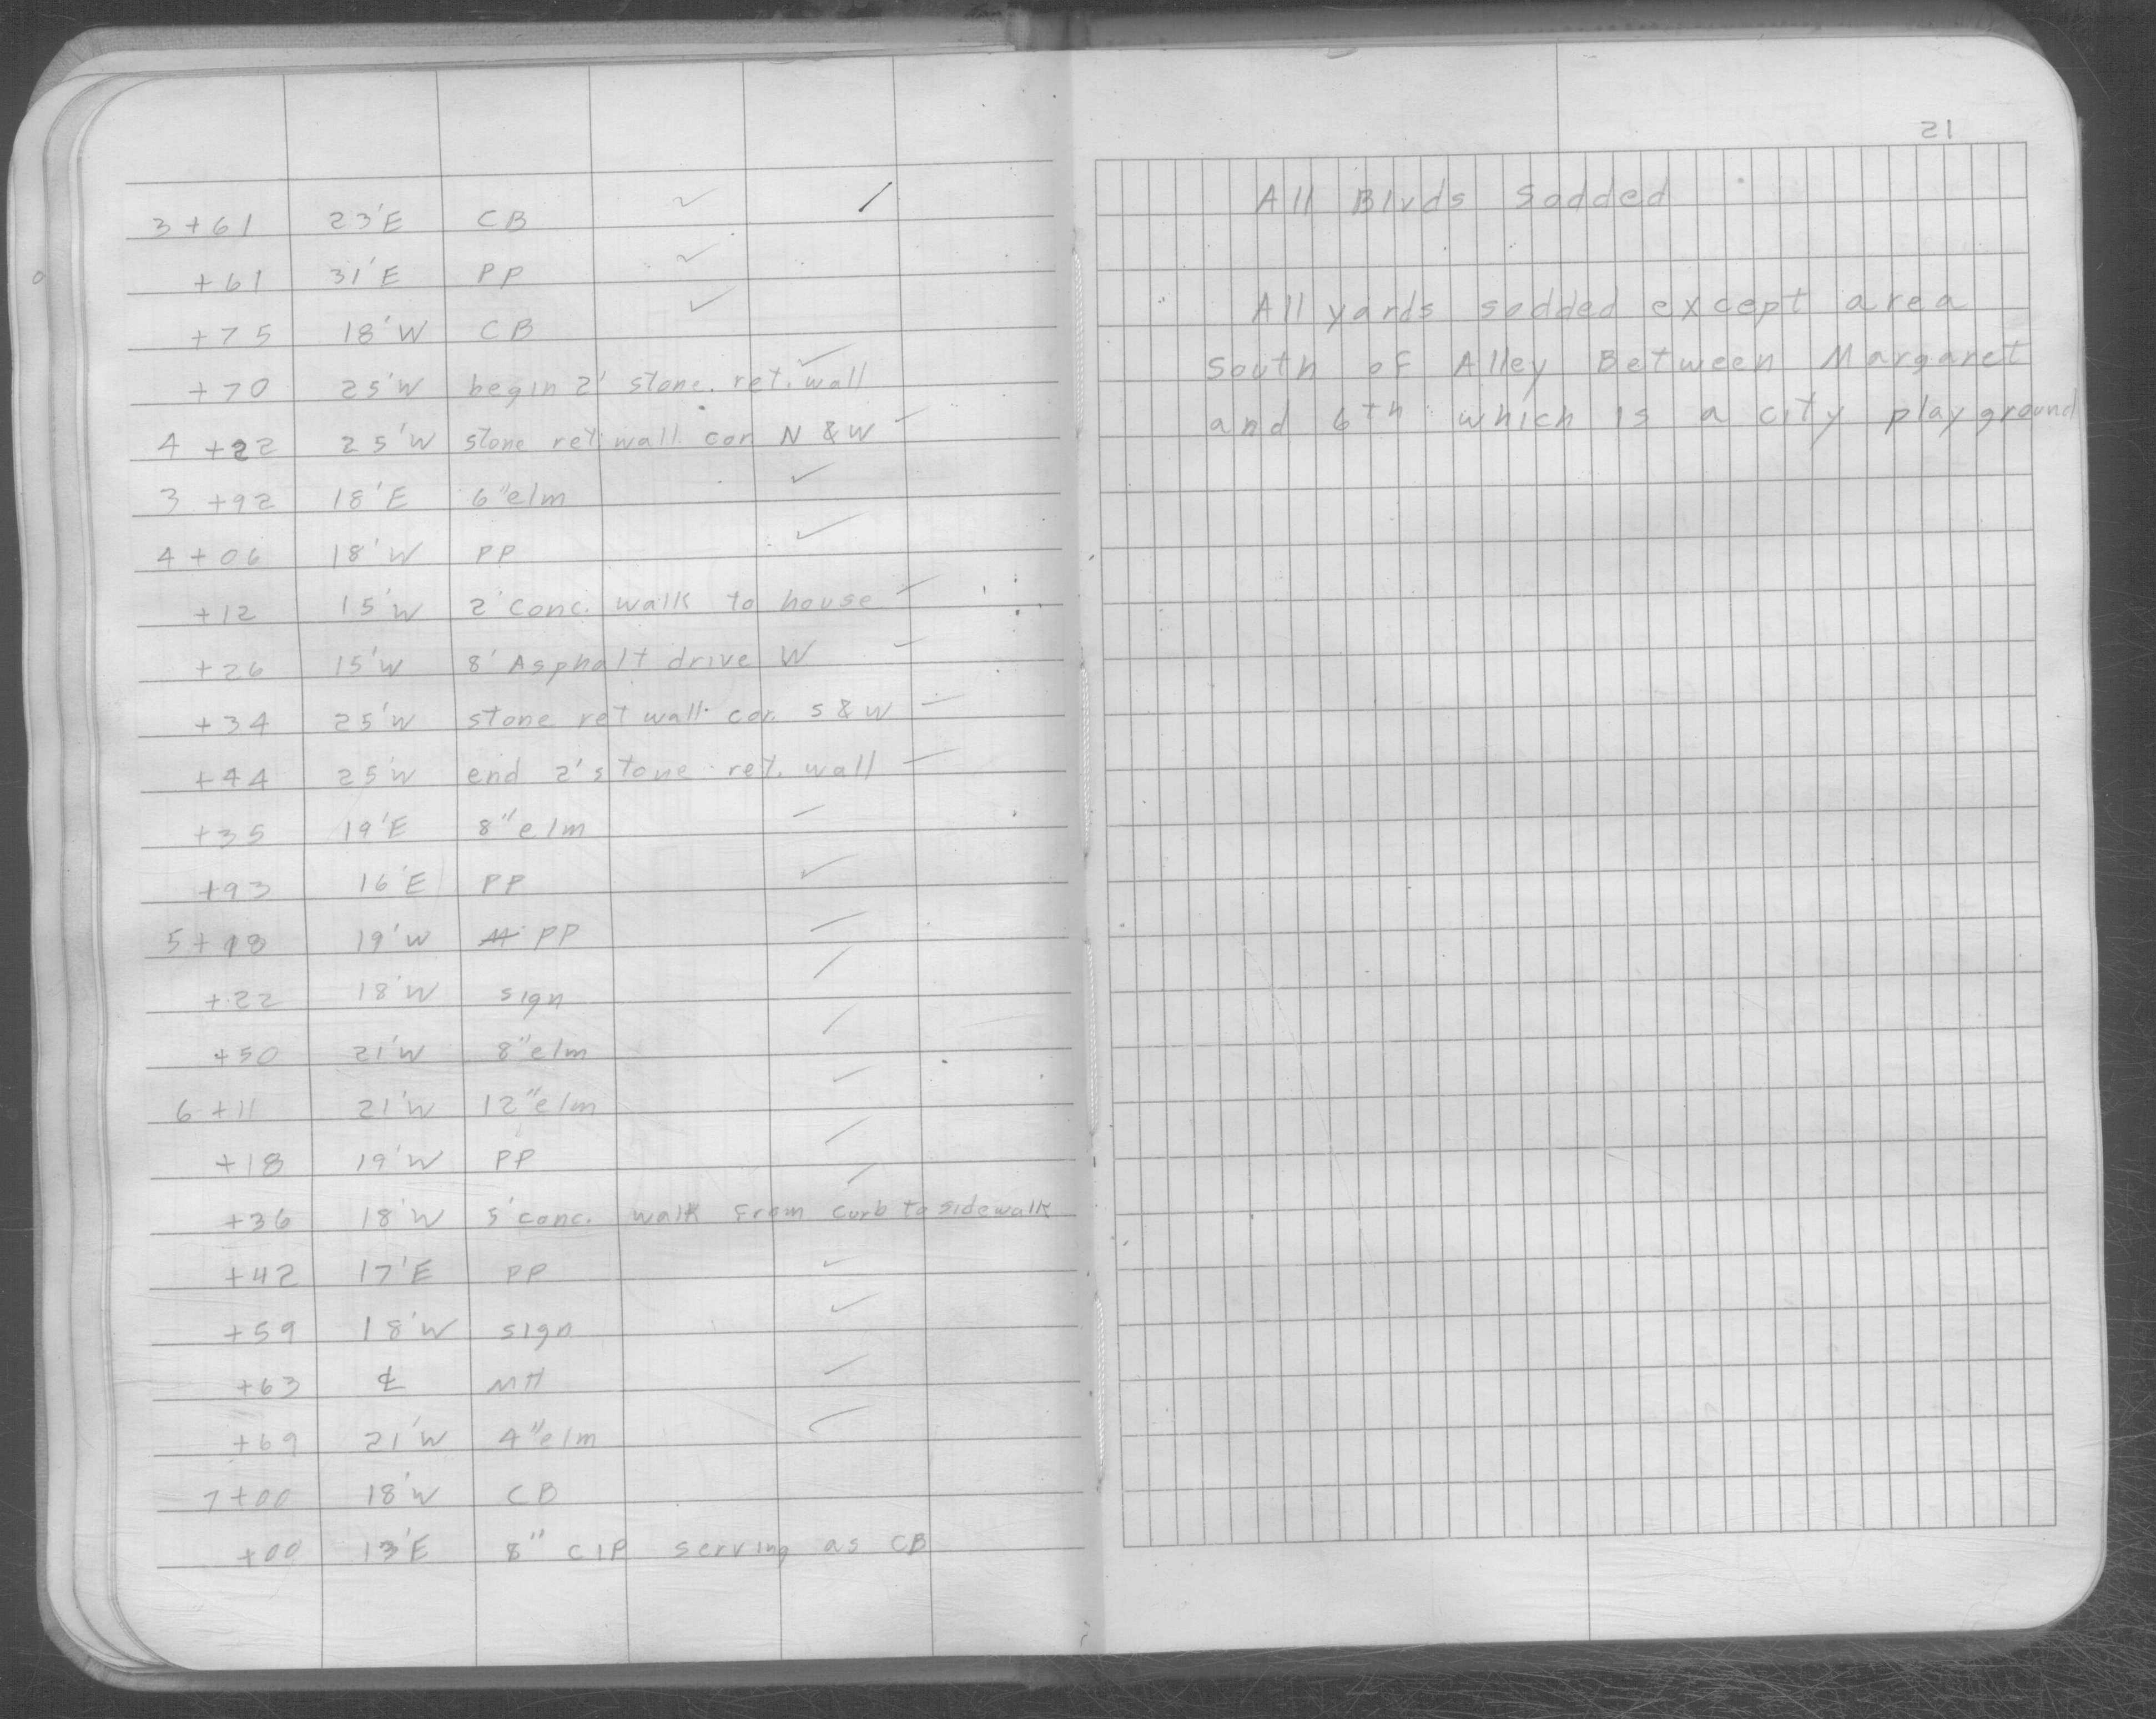 3+61 23'E CB ✓
+61 31'E PP ✓
+75 18'W CB ✓
+70 25'W begin 2' stone. ret. wall ✓
4+22 25'W stone ret. wall cor N & W ✓
3+92 18'E 6" elm ✓
4+06 18'W PP ✓
+12 15'W 2' conc. walk to house ✓
+26 15'W 8' Asphalt drive W ✓
+34 25'W stone ret wall cor. S & W ✓
+44 25'W end 2' stone ret. wall ✓
+35 19'E 8" elm ✓
+93 16'E PP ✓
5+18 19'W PP ✓
+22 18'W sign ✓
+50 21'W 8" elm ✓
6+11 21'W 12" elm ✓
+18 19'W PP ✓
+36 18'W 5' conc. walk From curb to sidewalk ✓
+42 17'E PP ✓
+59 18'W sign ✓
+63 ℄ MH ✓
+69 21'W 4" elm ✓
7+00 18'W CB
+00 13'E 8" CIP serving as CB
21
All Blvds Sodded
All yards sodded except area
South of Alley Between Margaret
and 6th which is a city playground